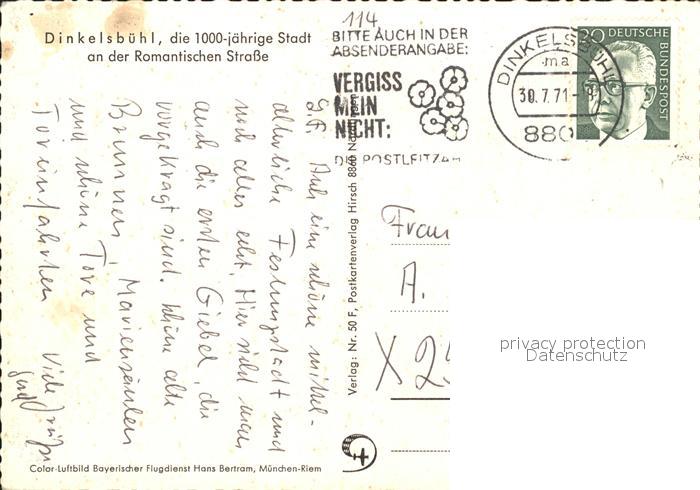 Dinkelsbühl, die 1000-jährige Stadt
an der Romantischen Straße
114
BITTE AUCH IN DER
ABSENDERANGABE:
VERGISS
MEIN
NICHT:
DIE POSTLEITZAH
DINKELSBÜHL
ma
30.7.71
880
30 DEUTSCHE
BUNDESPOST
Auch eine schöne mittel-
alterliche Festungsstadt und
noch alles echt. Hier sieht man
auch die ersten Giebel, die
vorgekragt sind. Schöne alte
Brunnen, Mariensäulen
und schöne Tore und
Toreinfahrten
Viele Grüße
Verlag: Nr. 50 F, Postkartenverlag Hirsch 8860 Nördlingen
Frau
A.
X 2
privacy protection
Datenschutz
Color-Luftbild Bayerischer Flugdienst Hans Bertram, München-Riem